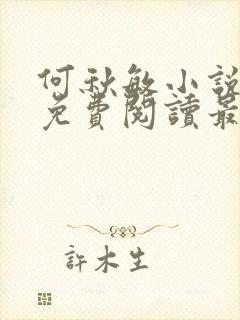 何秋敏小說
免費閱讀最
許木生